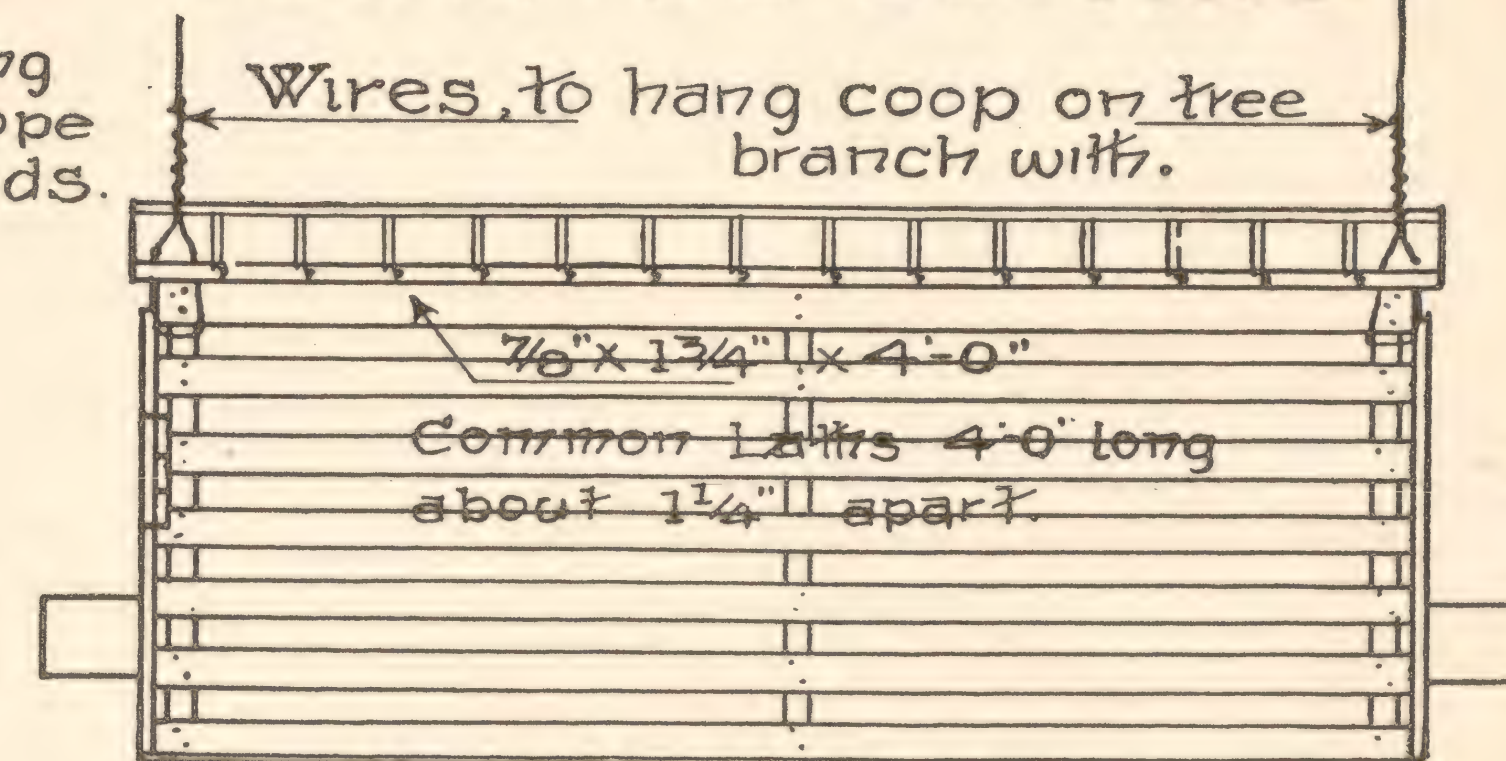 ng
ope
ds.
Wires, to hang coop on tree
branch with.
7/8" x 1 3/4" x 4'-0"
Common Laths 4'-0" long
about 1 1/4" apart.